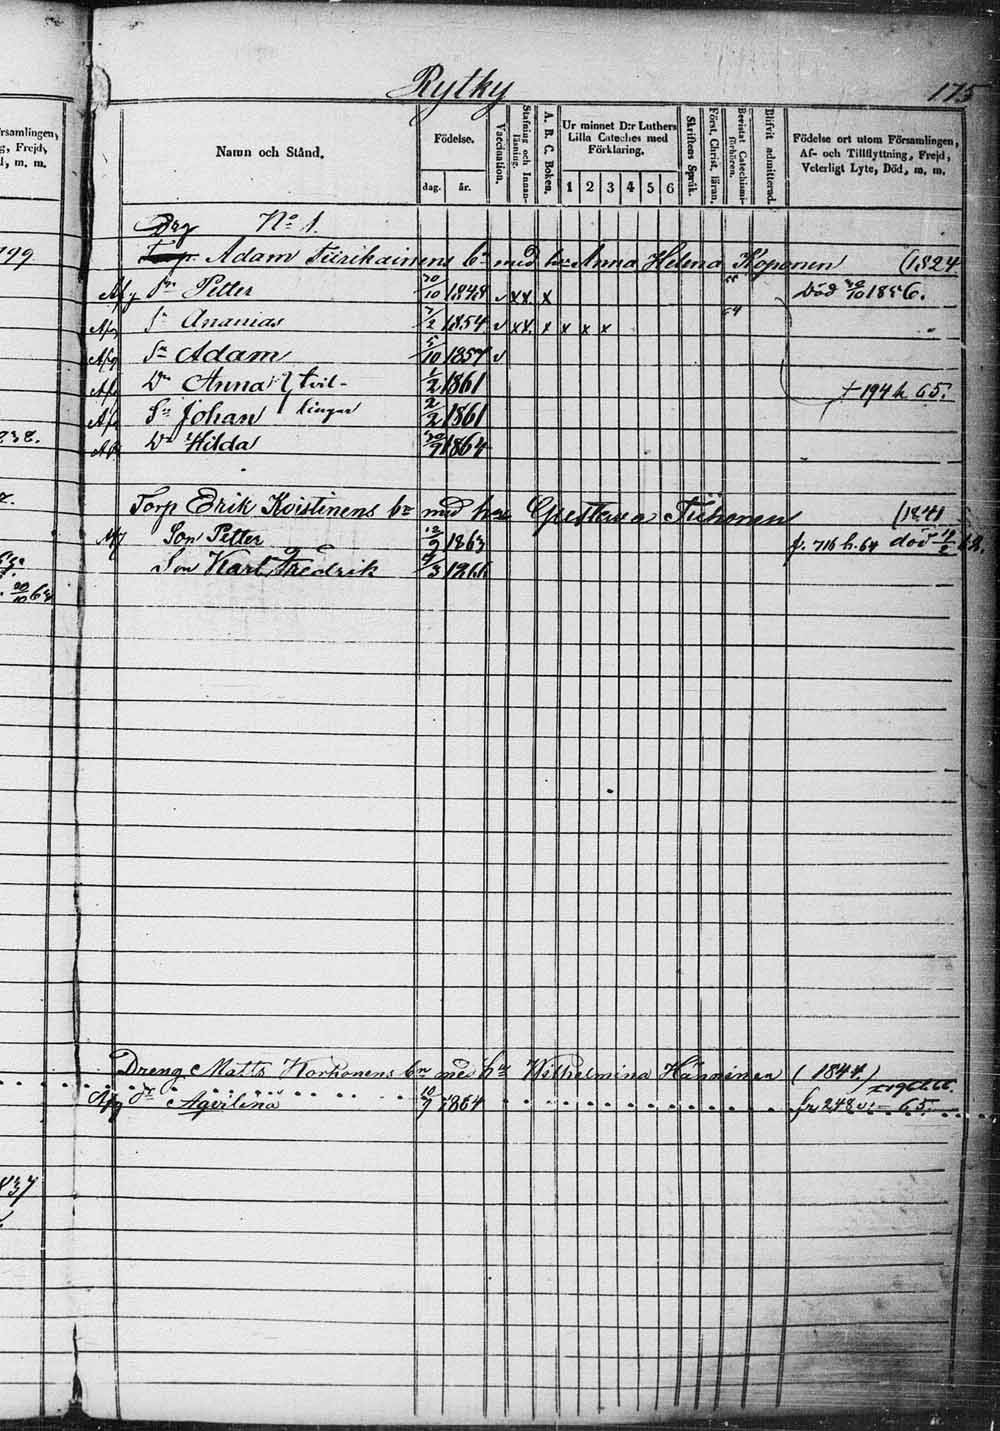 Rytky 175
Namn och Stånd.
Födelse.
dag. år.
Vaccination.
Stafning och Innanläsning.
A. B. C. Boken.
Ur minnet D:r Luthers Lilla Cateches med Förklaring.
1 2 3 4 5 6
Skriftens Språk.
Först. Christ. läran.
Bevistat Catechismiförhören.
Blifvit admitterad.
Födelse ort utom Församlingen, Af- och Tillflyttning, Frejd, Veterligt Lyte, Död, m. m.
Drg No 1.
Adam Tiirikainens bn med hu Anna Helena Koponen (1824
Afg Sn Petter 1848 v xx x Död 30/10 1856.
Afg Sn Ananias 7/2 1854 v xx x x x x
Afg Sn Adam 5/10 1857 v
Afg Dr Anna } tvil- 1/2 1861 + 194 h 65.
Afg Sn Johan } lingar 2/2 1861
Afg Dr Hilda 1864
Torp Erik Koistinens bn med hu Gustava Tiihonen (1841
Afg Son Petter 1863 f. 716 h. 64 död
Son Karl Fredrik
Dreng Matts Korhonens bn med hu Wilhelmina Hänninen (1844)
Afg Dr Agerlina 10/7 1864 fr 248 65.